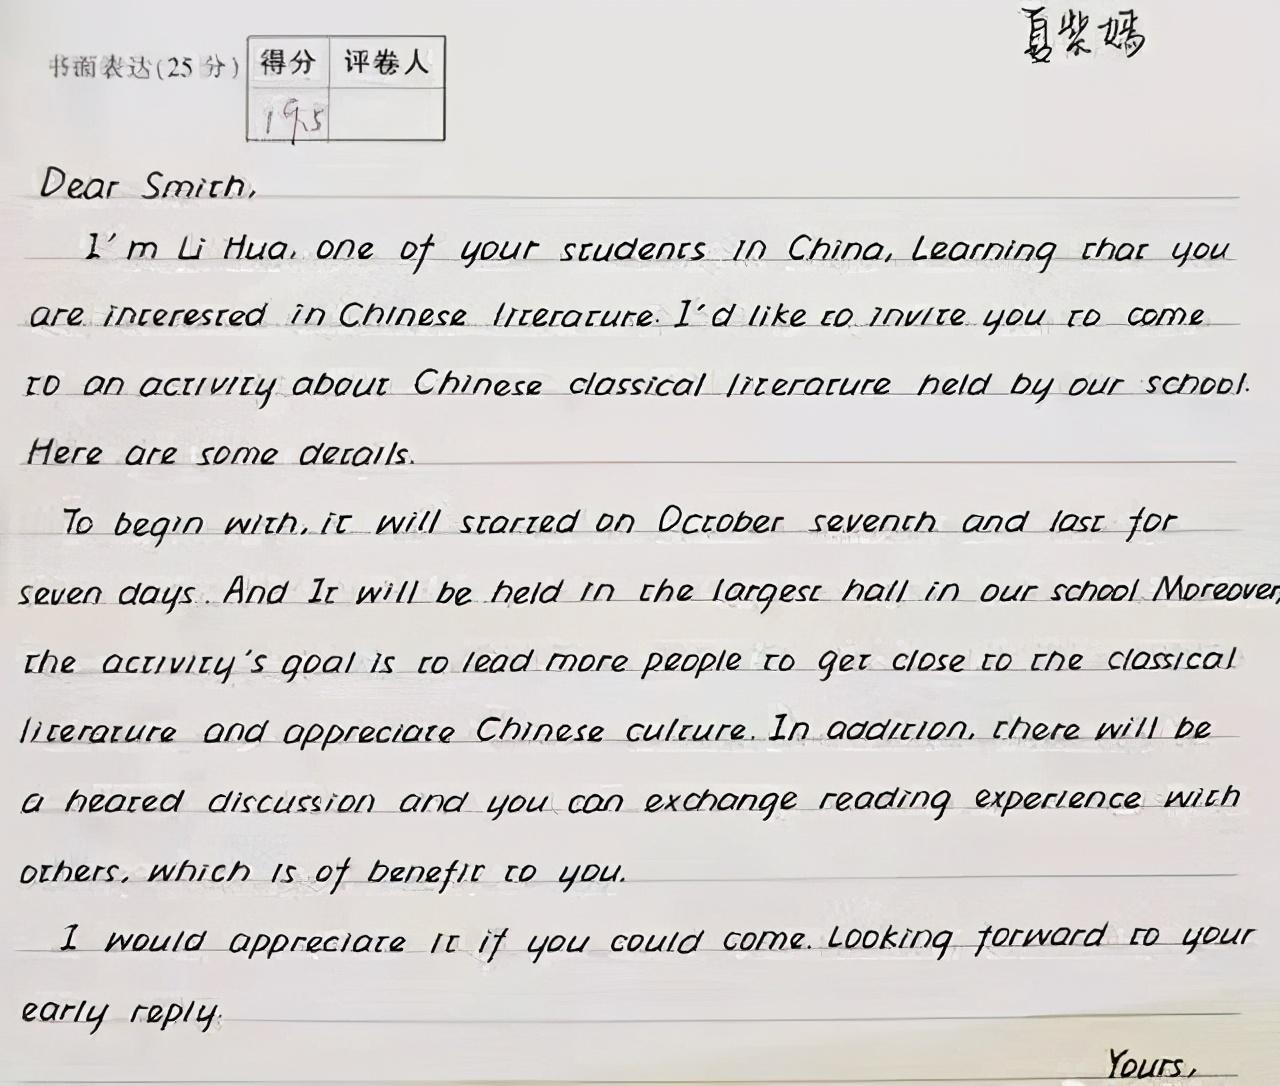 夏紫嫣
书面表达(25分) 得分 评卷人
19.5
Dear Smith,
I'm Li Hua, one of your students in China, Learning that you
are interested in Chinese literature. I'd like to invite you to come
to an activity about Chinese classical literature held by our school.
Here are some details.
To begin with, it will started on October seventh and last for
seven days. And It will be held in the largest hall in our school Moreover,
the activity's goal is to lead more people to get close to the classical
literature and appreciate Chinese culture. In addition, there will be
a heated discussion and you can exchange reading experience with
others, which is of benefit to you.
I would appreciate it if you could come. Looking forward to your
early reply.
Yours,